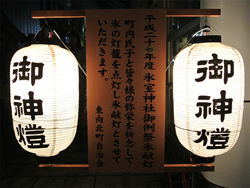 平成二十七年度 氷室神社御例祭献氷灯
町内氏子と皆様の弥栄を祈念して
氷の灯籠を点灯し氷献灯とさせて
いただきます。
東向北町自治会
御神燈
御神燈